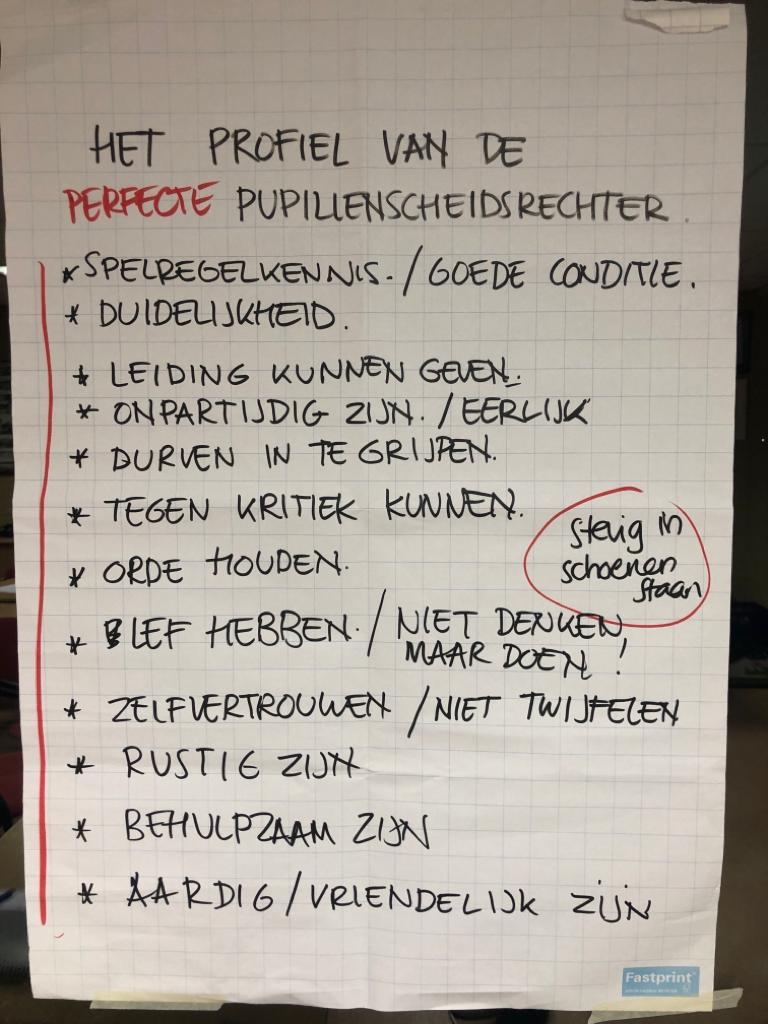 HET PROFIEL VAN DE
PERFECTE PUPILLENSCHEIDSRECHTER.
* SPELREGELKENNIS. / GOEDE CONDITIE.
* DUIDELIJKHEID.
* LEIDING KUNNEN GEVEN.
* ONPARTIJDIG ZIJN. / EERLIJK
* DURVEN IN TE GRIJPEN.
* TEGEN KRITIEK KUNNEN.
stevig in
schoenen
staan
* ORDE HOUDEN.
* LEF HEBBEN. / NIET DENKEN,
MAAR DOEN!
* ZELFVERTROUWEN / NIET TWIJFELEN
* RUSTIG ZIJN
* BEHULPZAAM ZIJN
* AARDIG / VRIENDELIJK ZIJN
Fastprint